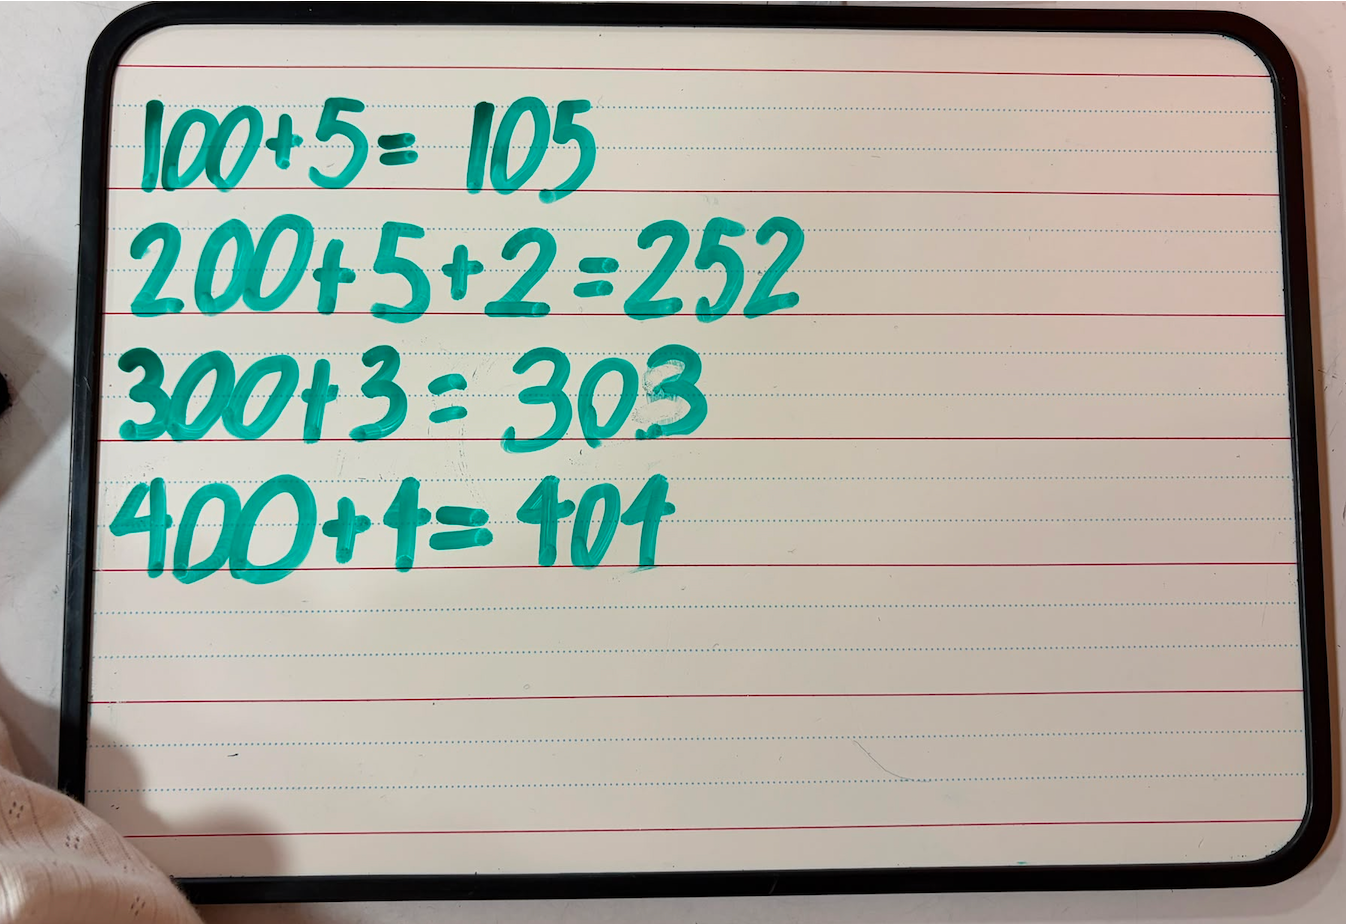 100+5= 105
200+5+2=252
300+3= 303
400+4= 404